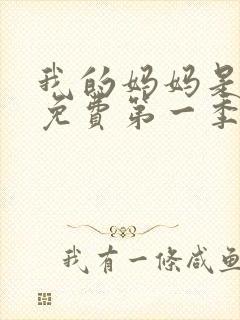 我的妈妈是
免费第一季
我有一条咸鱼